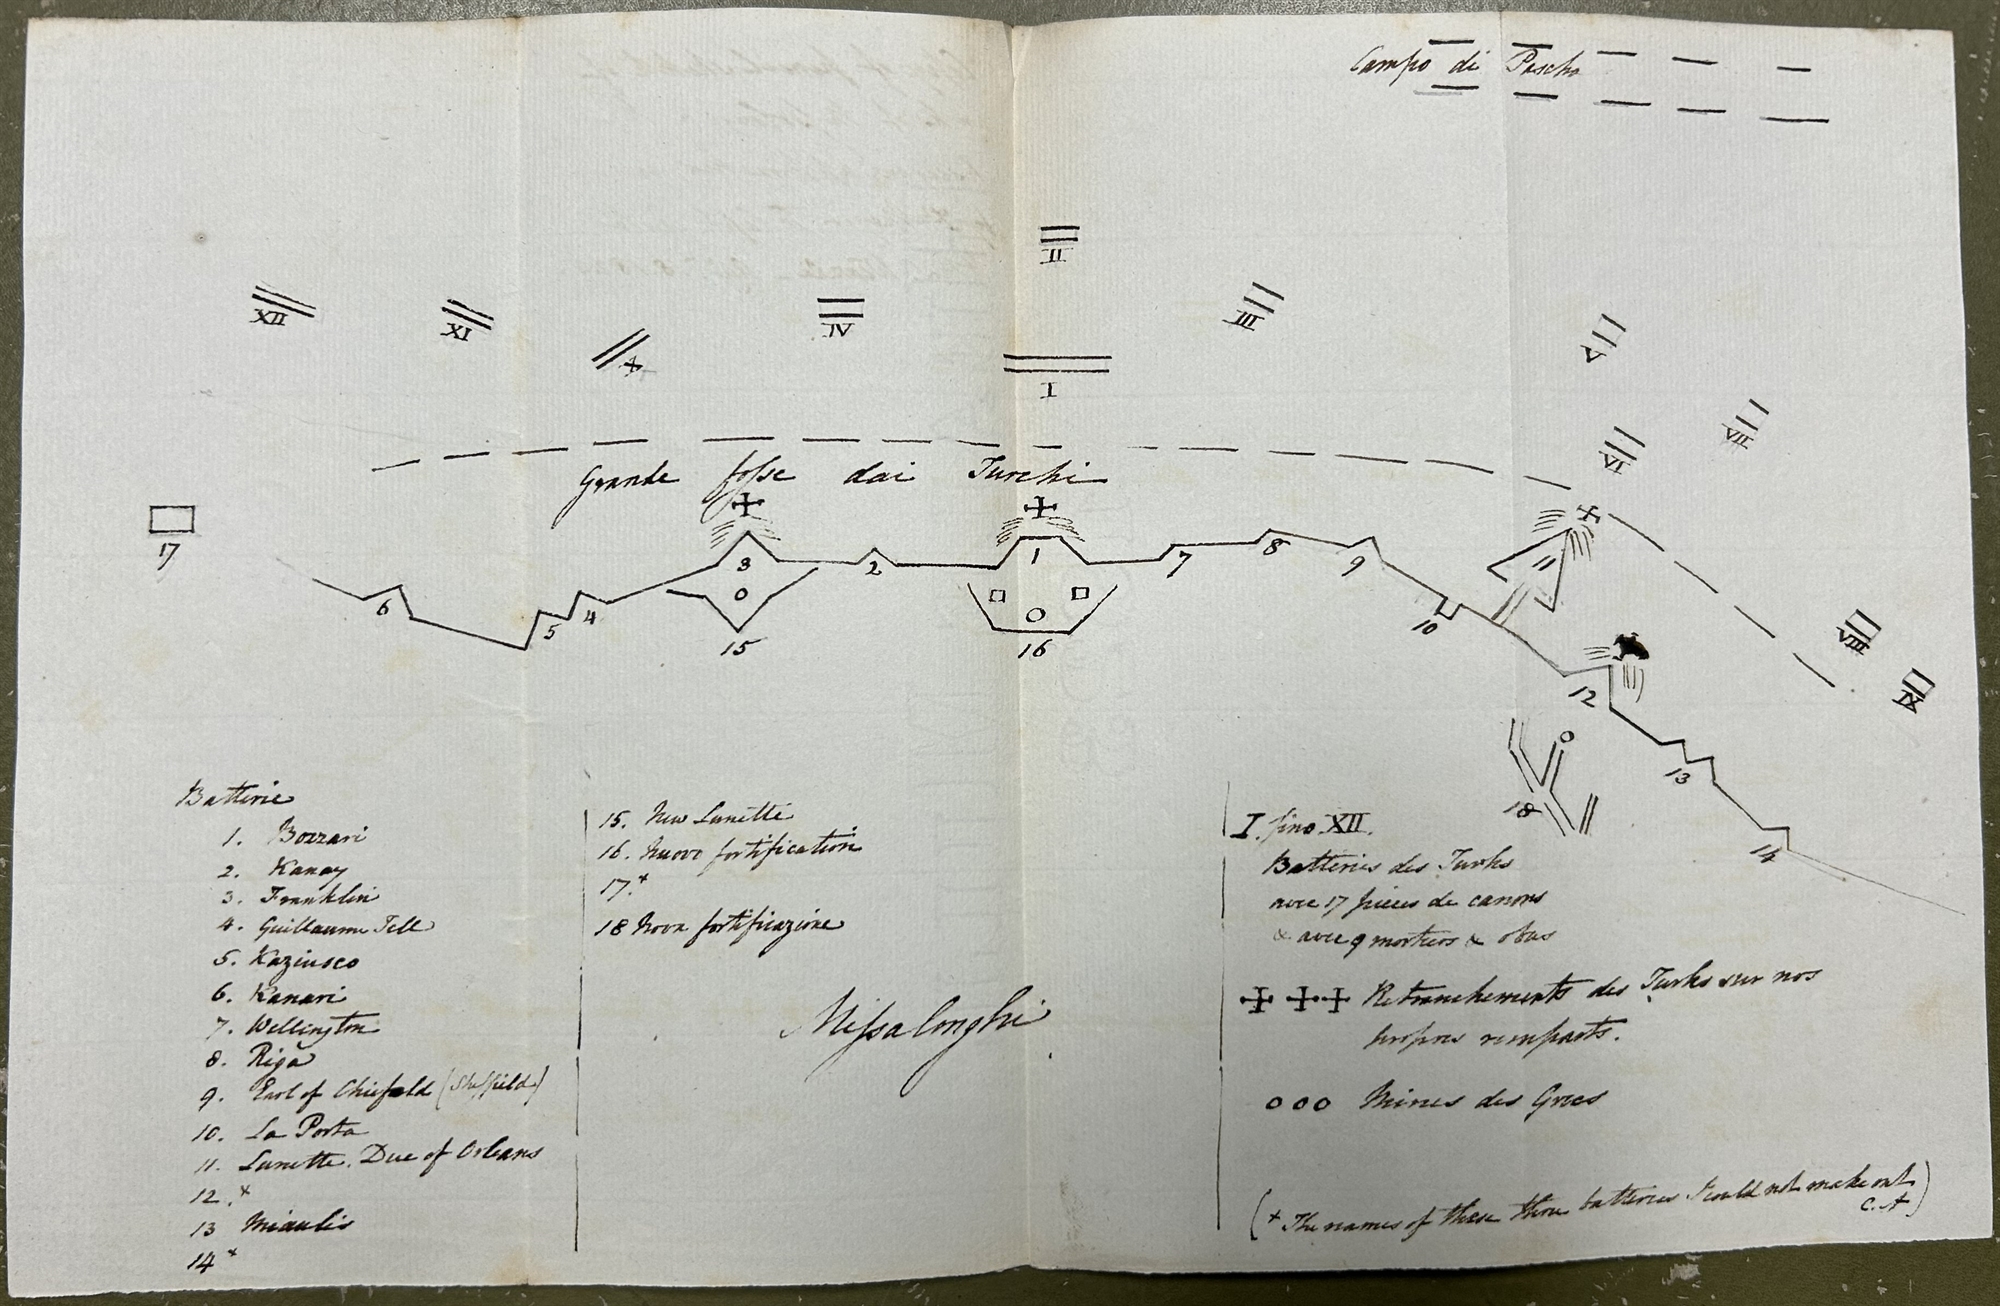 Campo di Pascha
II
XII
XI
X
IV
III
V
I
VII
VI
Grande fosse dai Turchi
17
3
2
1
7
8
9
11
6
5
4
15
16
10
VIII
IX
12
13
18
14
Batterie
1. Bozzari
2. Kanay
3. Franklin
4. Guillaume Tell
5. Kaziusco
6. Kanari
7. Wellington
8. Riga
9. Earl of Chiefeld (Sheffield)
10. La Porta
11. Lunette. Duc of Orleans
12. +
13 Miaulis
14 +
15. New Lunette
16. Nuovo fortification
17. +
18 Nova fortificazione
Missalonghi
I. fino XII.
Batteries des Turks
avec 17 pieces de canons
& avec 9 mortiers & obus
Retranchements des Turks sur nos
propres remparts.
Mines des Grecs
(+ The names of these three batteries I could not make out
C. A)